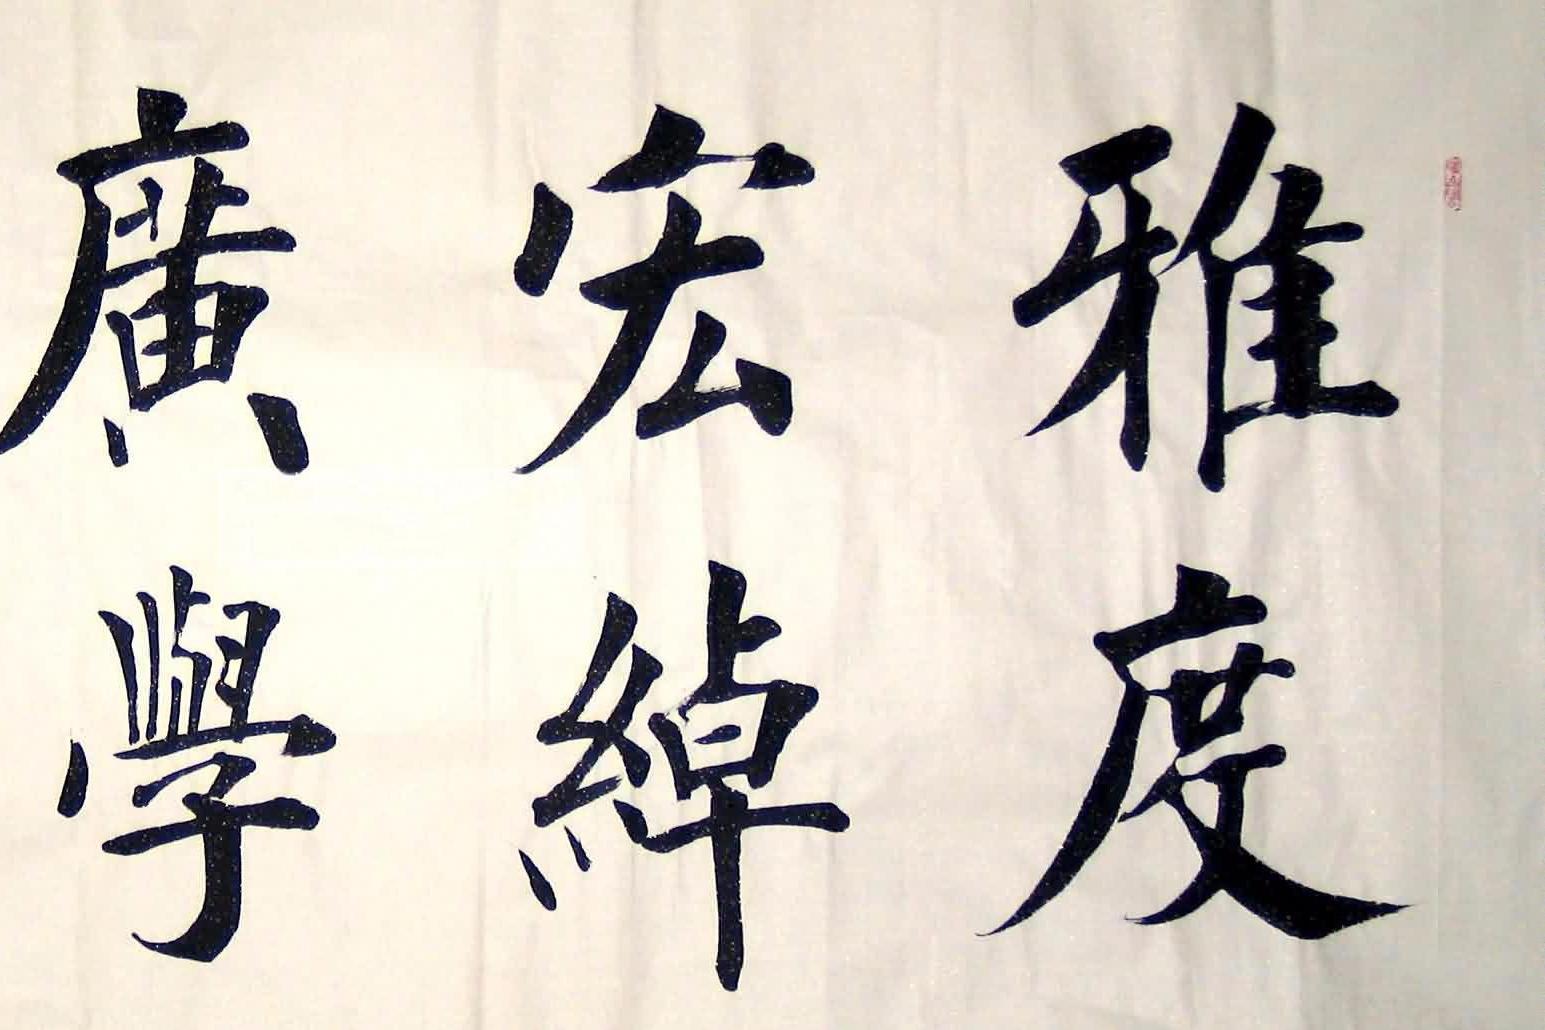 雅度
宏綽
廣學